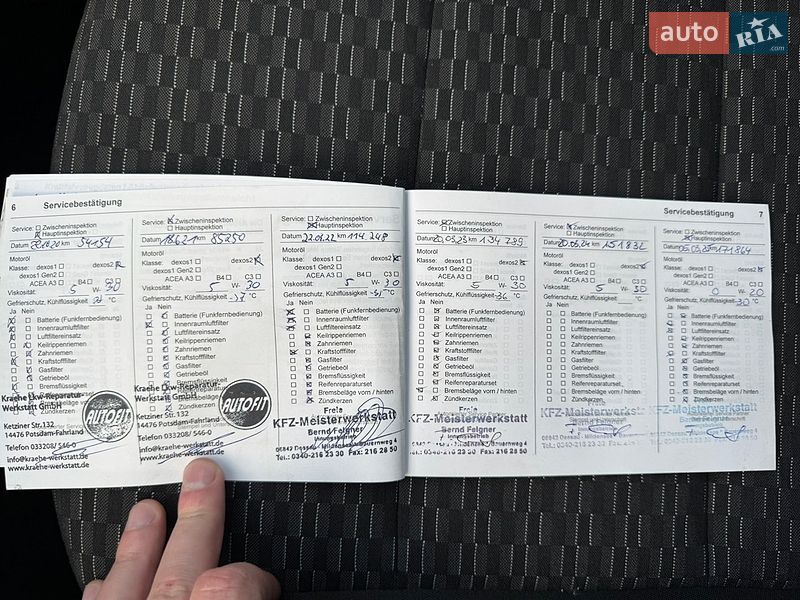 auto RIA .com
6 Servicebestätigung
Service: Zwischeninspektion
Hauptinspektion
Datum km 54154
Motoröl
Klasse: dexos1 dexos2
dexos1 Gen2
ACEA A3 B4 C3
Viskosität: 5 W- 30
Gefrierschutz, Kühlflüssigkeit °C
Ja Nein
Batterie (Funkfernbedienung)
Innenraumluftfilter
Luftfiltereinsatz
Keilrippenriemen
Zahnriemen
Kraftstofffilter
Gasfilter
Getriebeöl
Kraehe Lkw-Reparatur-
Werkstatt GmbH
Ketziner Str.132
14476 Potsdam-Fahrland
Telefon 033208/ 546-0
info@kraehe-werkstatt.de
www.kraehe-werkstatt.de
AUTOFIT
Service: Zwischeninspektion
Hauptinspektion
Datum 18.6.21 km 85250
Motoröl
Klasse: dexos1 dexos2
dexos1 Gen2
ACEA A3 B4 C3
Viskosität: 5 W- 30
Gefrierschutz, Kühlflüssigkeit °C
Ja Nein
Batterie (Funkfernbedienung)
Innenraumluftfilter
Luftfiltereinsatz
Keilrippenriemen
Zahnriemen
Kraftstofffilter
Gasfilter
Getriebeöl
Bremsflüssigkeit
Kraehe Lkw-Reparatur-
Werkstatt GmbH
Zündkerzen
Ketziner Str. 132
14476 Potsdam-Fahrland
Telefon 033208/ 546-0
info@kraehe-werkstatt.de
www.kraehe-werkstatt.de
AUTOFIT
Service: Zwischeninspektion
Hauptinspektion
Datum 22.06.22 km 114 248
Motoröl
Klasse: dexos1 dexos2
dexos1 Gen2
ACEA A3 B4 C3
Viskosität: 5 W- 30
Gefrierschutz, Kühlflüssigkeit °C
Ja Nein
Batterie (Funkfernbedienung)
Innenraumluftfilter
Luftfiltereinsatz
Keilrippenriemen
Zahnriemen
Kraftstofffilter
Gasfilter
Getriebeöl
Bremsflüssigkeit
Reifenreparaturset
Bremsbeläge vorn / hinten
Zündkerzen
Freie
KFZ-Meisterwerkstatt
Bernd Felgner
Innungsbetrieb
Tel.: 0340-216 23 30 Fax: 216 28 50
Servicebestätigung 7
Service: Zwischeninspektion
Hauptinspektion
Datum km 134 789
Motoröl
Klasse: dexos1 dexos2
dexos1 Gen2
ACEA A3 B4 C3
Viskosität: 5 W- 30
Gefrierschutz, Kühlflüssigkeit °C
Ja Nein
Batterie (Funkfernbedienung)
Innenraumluftfilter
Luftfiltereinsatz
Keilrippenriemen
Zahnriemen
Kraftstofffilter
Gasfilter
Getriebeöl
Bremsflüssigkeit
Reifenreparaturset
Bremsbeläge vorn / hinten
Zündkerzen
Freie
KFZ-Meisterwerkstatt
Bernd Felgner
Innungsbetrieb
Service: Zwischeninspektion
Hauptinspektion
Datum 20.06.24 km
Motoröl
Klasse: dexos1 dexos2
dexos1 Gen2
ACEA A3 B4 C3
Viskosität: 5 W- 30
Gefrierschutz, Kühlflüssigkeit °C
Ja Nein
Batterie (Funkfernbedienung)
Innenraumluftfilter
Luftfiltereinsatz
Keilrippenriemen
Zahnriemen
Kraftstofffilter
Gasfilter
Getriebeöl
Bremsflüssigkeit
Reifenreparaturset
Bremsbeläge vorn / hinten
Zündkerzen
KFZ-Meisterwerkstatt
Bernd Felgner
Service: Zwischeninspektion
Hauptinspektion
Datum km 171864
Motoröl
Klasse: dexos1 dexos2
dexos1 Gen2
ACEA A3 B4 C3
Viskosität: 0 W- 20
Gefrierschutz, Kühlflüssigkeit °C
Ja Nein
Batterie (Funkfernbedienung)
Innenraumluftfilter
Luftfiltereinsatz
Keilrippenriemen
Zahnriemen
Kraftstofffilter
Gasfilter
Getriebeöl
Bremsflüssigkeit
Reifenreparaturset
Bremsbeläge vorn / hinten
Zündkerzen
KFZ-Meisterwerkstatt